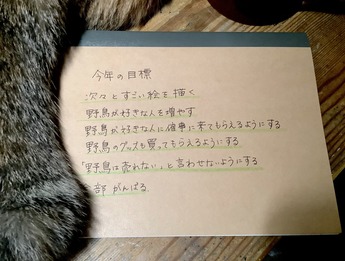 今年の目標
次々とすごい絵を描く
野鳥が好きな人を増やす
野鳥が好きな人に確実に来てもらえるようにする
野鳥のグッズも買ってもらえるようにする
「野鳥は売れない」と言わせないようにする
部 がんばる